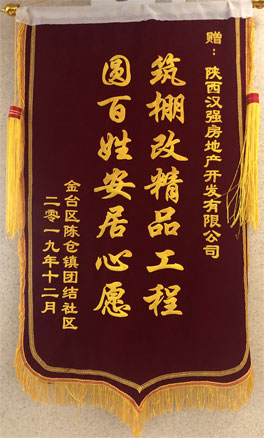 赠：陕西汉强房地产开发有限公司
筑棚改精品工程
圆百姓安居心愿
金台区陈仓镇团结社区
二零一九年十二月